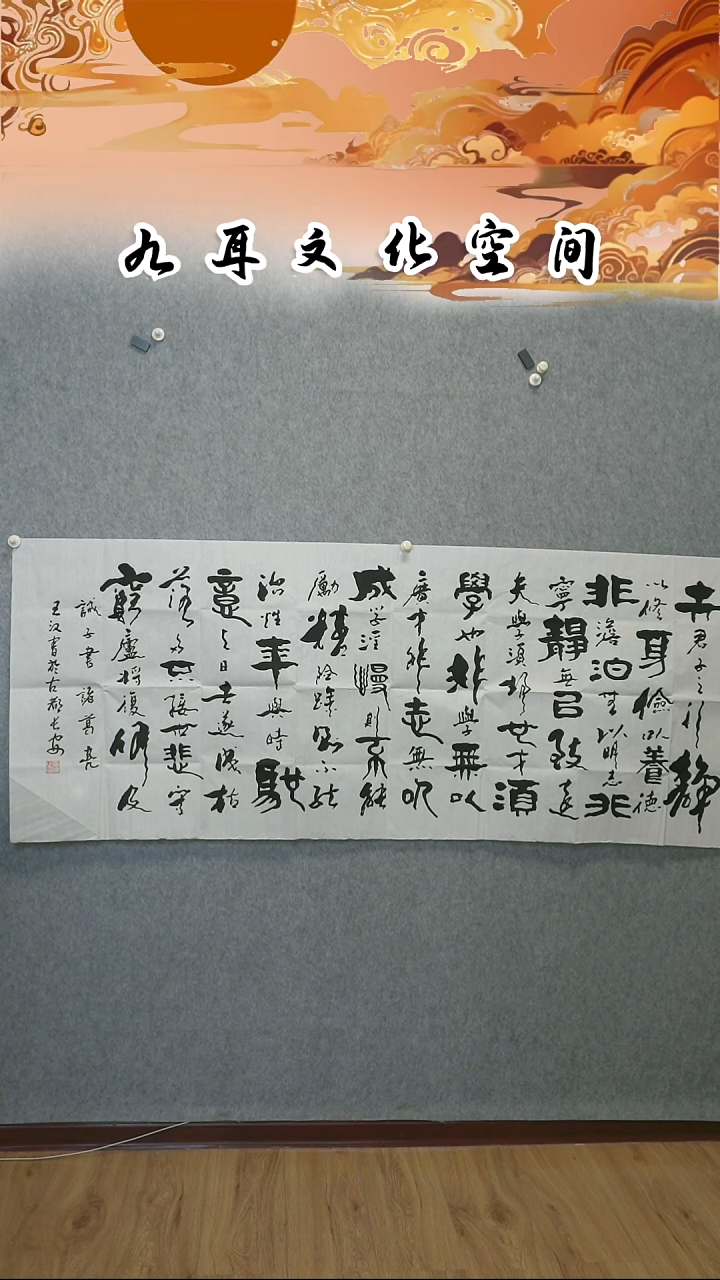 九耳文化空间
夫君子之行静
以修身儉以養德
非澹泊無以明志非
寧靜無以致遠
夫學須靜也才須
學也非學無以
廣才非志無以
成学淫慢則不能
勵精險躁則不能
治性年與時馳
意与日去遂成枯
落多不接世悲守
窮廬將復何及
誡子書諸葛亮
王汉書於古都长安